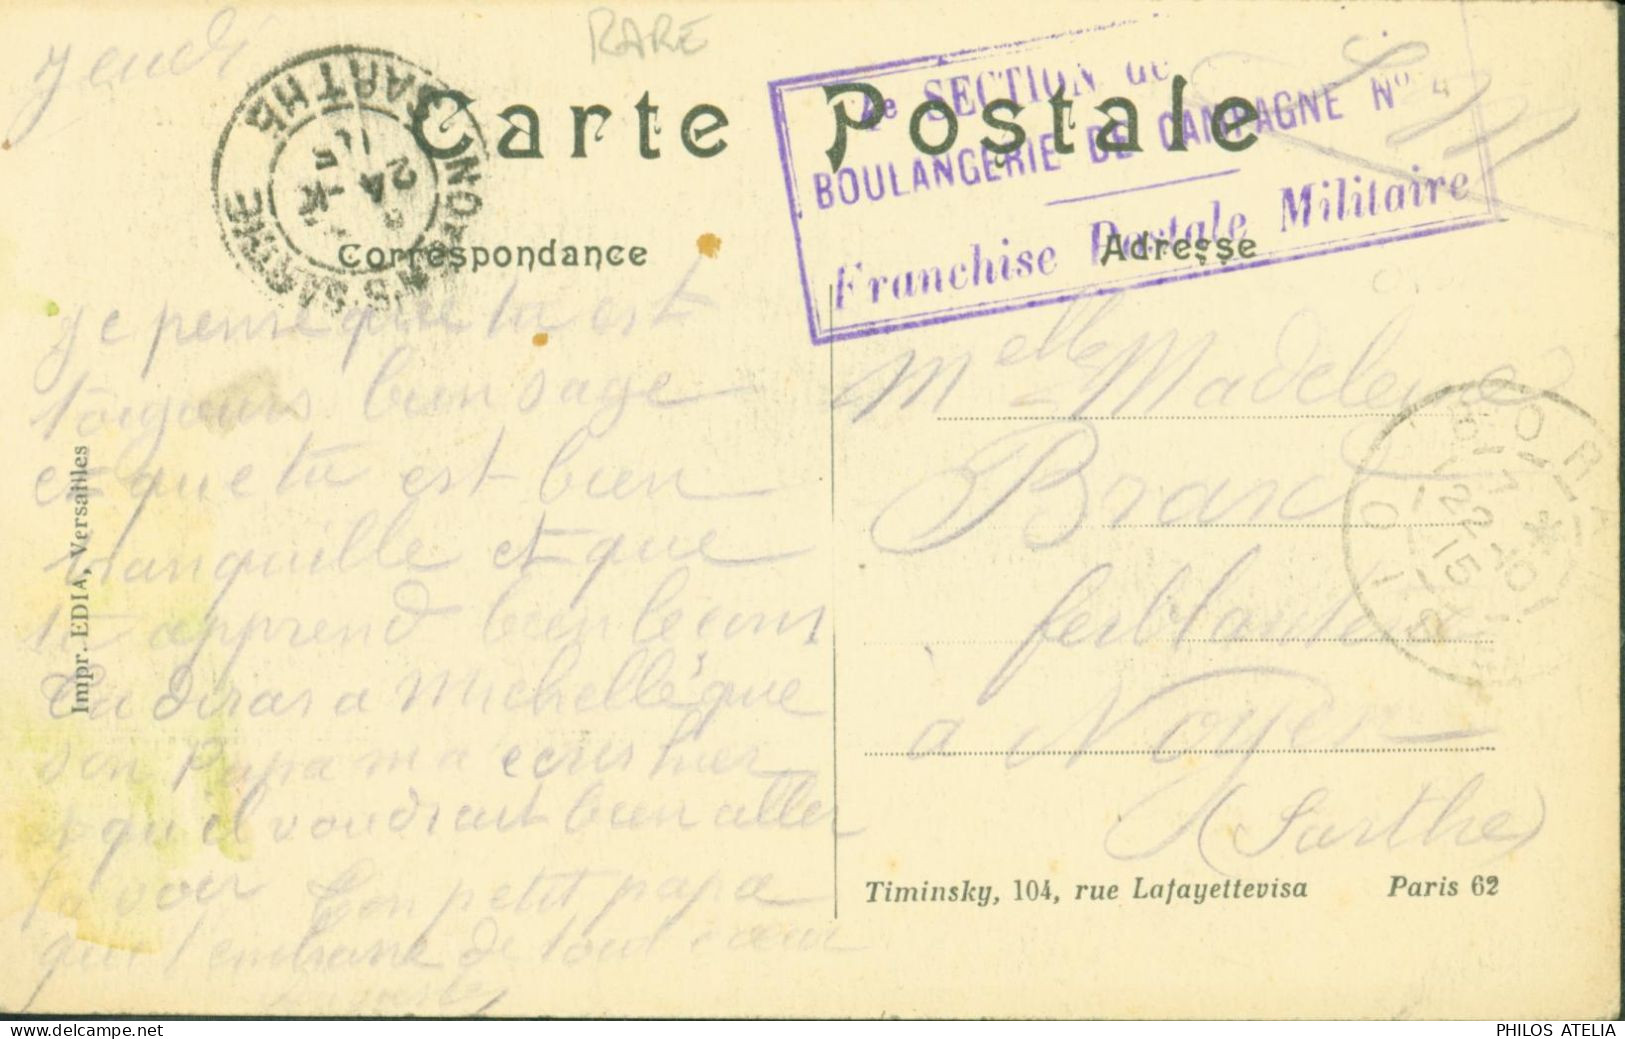 RARE
Jeudi
S M
Carte Postale
4e SECTION de
BOULANGERIE DE CAMPAGNE No 4
Franchise Postale Militaire
NOYEN-S-SARTHE
SARTHE
24
Correspondance
Adresse
Je pense que tu est
toujours bien sage
et que tu est bien
tranquille et que
tu apprend bien leçons
Tu diras a Michelle que
son Papa m a ecris hier
qu il voudrait bien aller
la voir Ton petit papa
qui t embrasse de tout cœur
Melle Madeleine
ferblantier
a Noyen
(Sarthe)
22
15
Impr. EDIA, Versailles
Timinsky, 104, rue Lafayettevisa Paris 62
PHILOS ATELIA
www.delcampe.net